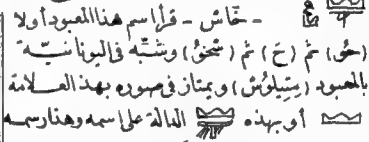 - خَاسْ - قرأ اسم هذا المعبود أولا
(حُو) ثم (حَ) ثم (سْخِقْ) وشبّه فى اليونانيّة
بالمعبود (سِتِيلُوسْ) ويمتاز فى صوره بهذه العلامة
أو بهذه الدالة على اسمه وهنا رسمه